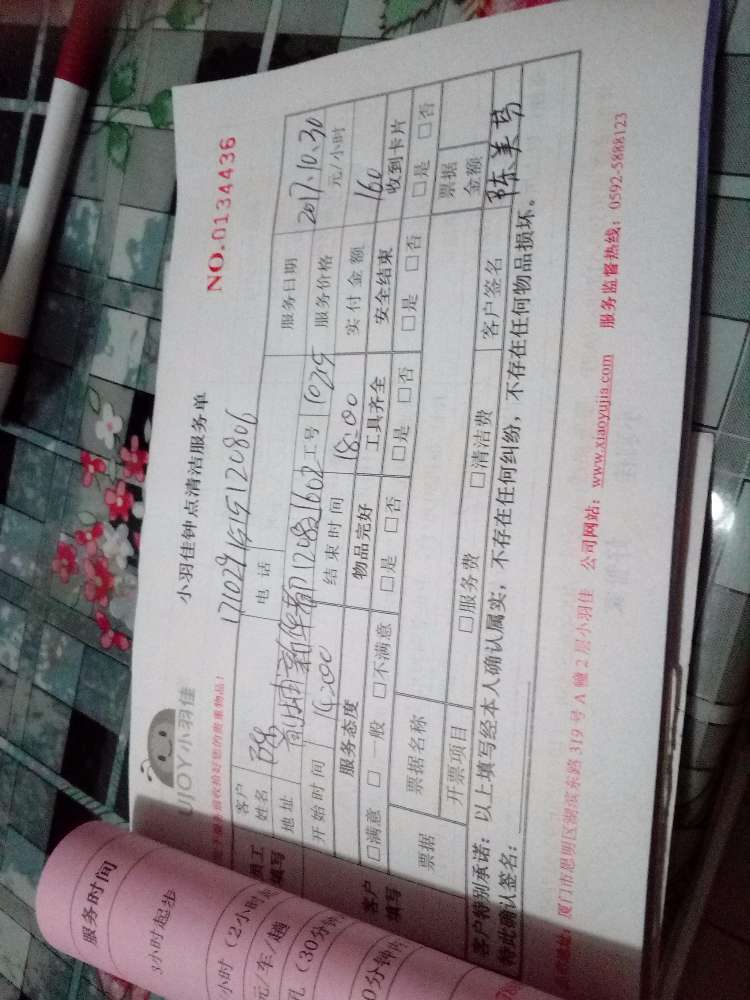 UJOY小羽佳
小羽佳钟点清洁服务单
NO.0134436
收拾好您的贵重物品!
17102915151120806
客户姓名 陈 电话 服务日期 2017.10.30
地址 新华都 1602 工号 1025 服务价格 元/小时
开始时间 14:00 结束时间 18:00 实付金额 160
员工填写
服务态度 物品完好 工具齐全 安全结束 收到卡片
□满意 □一般 □不满意 □是 □否 □是 □否 □是 □否 □是 □否
客户填写
票据 票据名称 票据金额
开票项目 □服务费 □清洁费 客户签名 陈美
客户特别承诺:以上填写经本人确认属实,不存在任何纠纷,不存在任何物品损坏。
特此确认签名:
厦门市思明区湖滨东路319号A幢2层小羽佳 公司网站:www.xiaoyujia.com 服务监督热线:0592-5888123
服务时间
3小时起步
小时(2小时
元/车/趟
(30分钟
0分钟